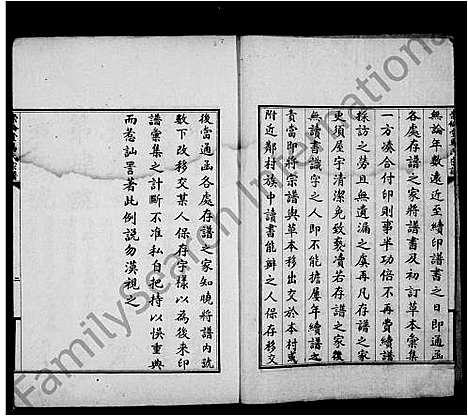 無論年數遠近至續印譜書之日即通函
各處存譜之家將譜書及初訂草本彙集
一方湊合付印則事半功倍不再費續譜
採訪之勞且無遺漏之虞再凡存譜之家
更須屋宇清潔免致褻瀆若存譜之家後
無讀書識字之人即不能擔屢年續譜之
責當即將宗譜與草本移出交於本村或
附近鄰村族中讀書能辦之人保存移交
後當通函各處存譜之家知曉將譜內號
數下改移交某人保存字樣以為後來印
譜彙集之計斷不准私自把持以悞重典
而惹訕詈著此例說勿漠視之
二
FamilySearch International